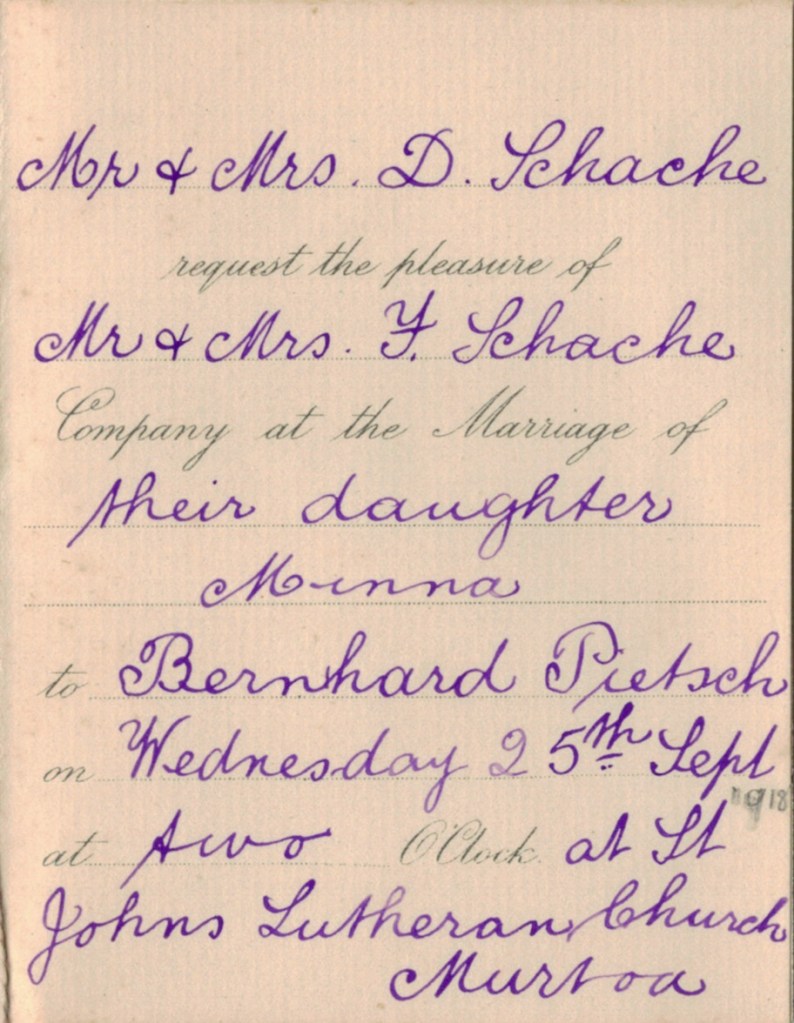 Mr & Mrs. D. Schache
request the pleasure of
Mr & Mrs. F. Schache
Company at the Marriage of
their daughter
Minna
to Bernhard Pietsch
on Wednesday 25th Sept
1918
at two O'Clock at St
Johns Lutheran Church
Murtoa